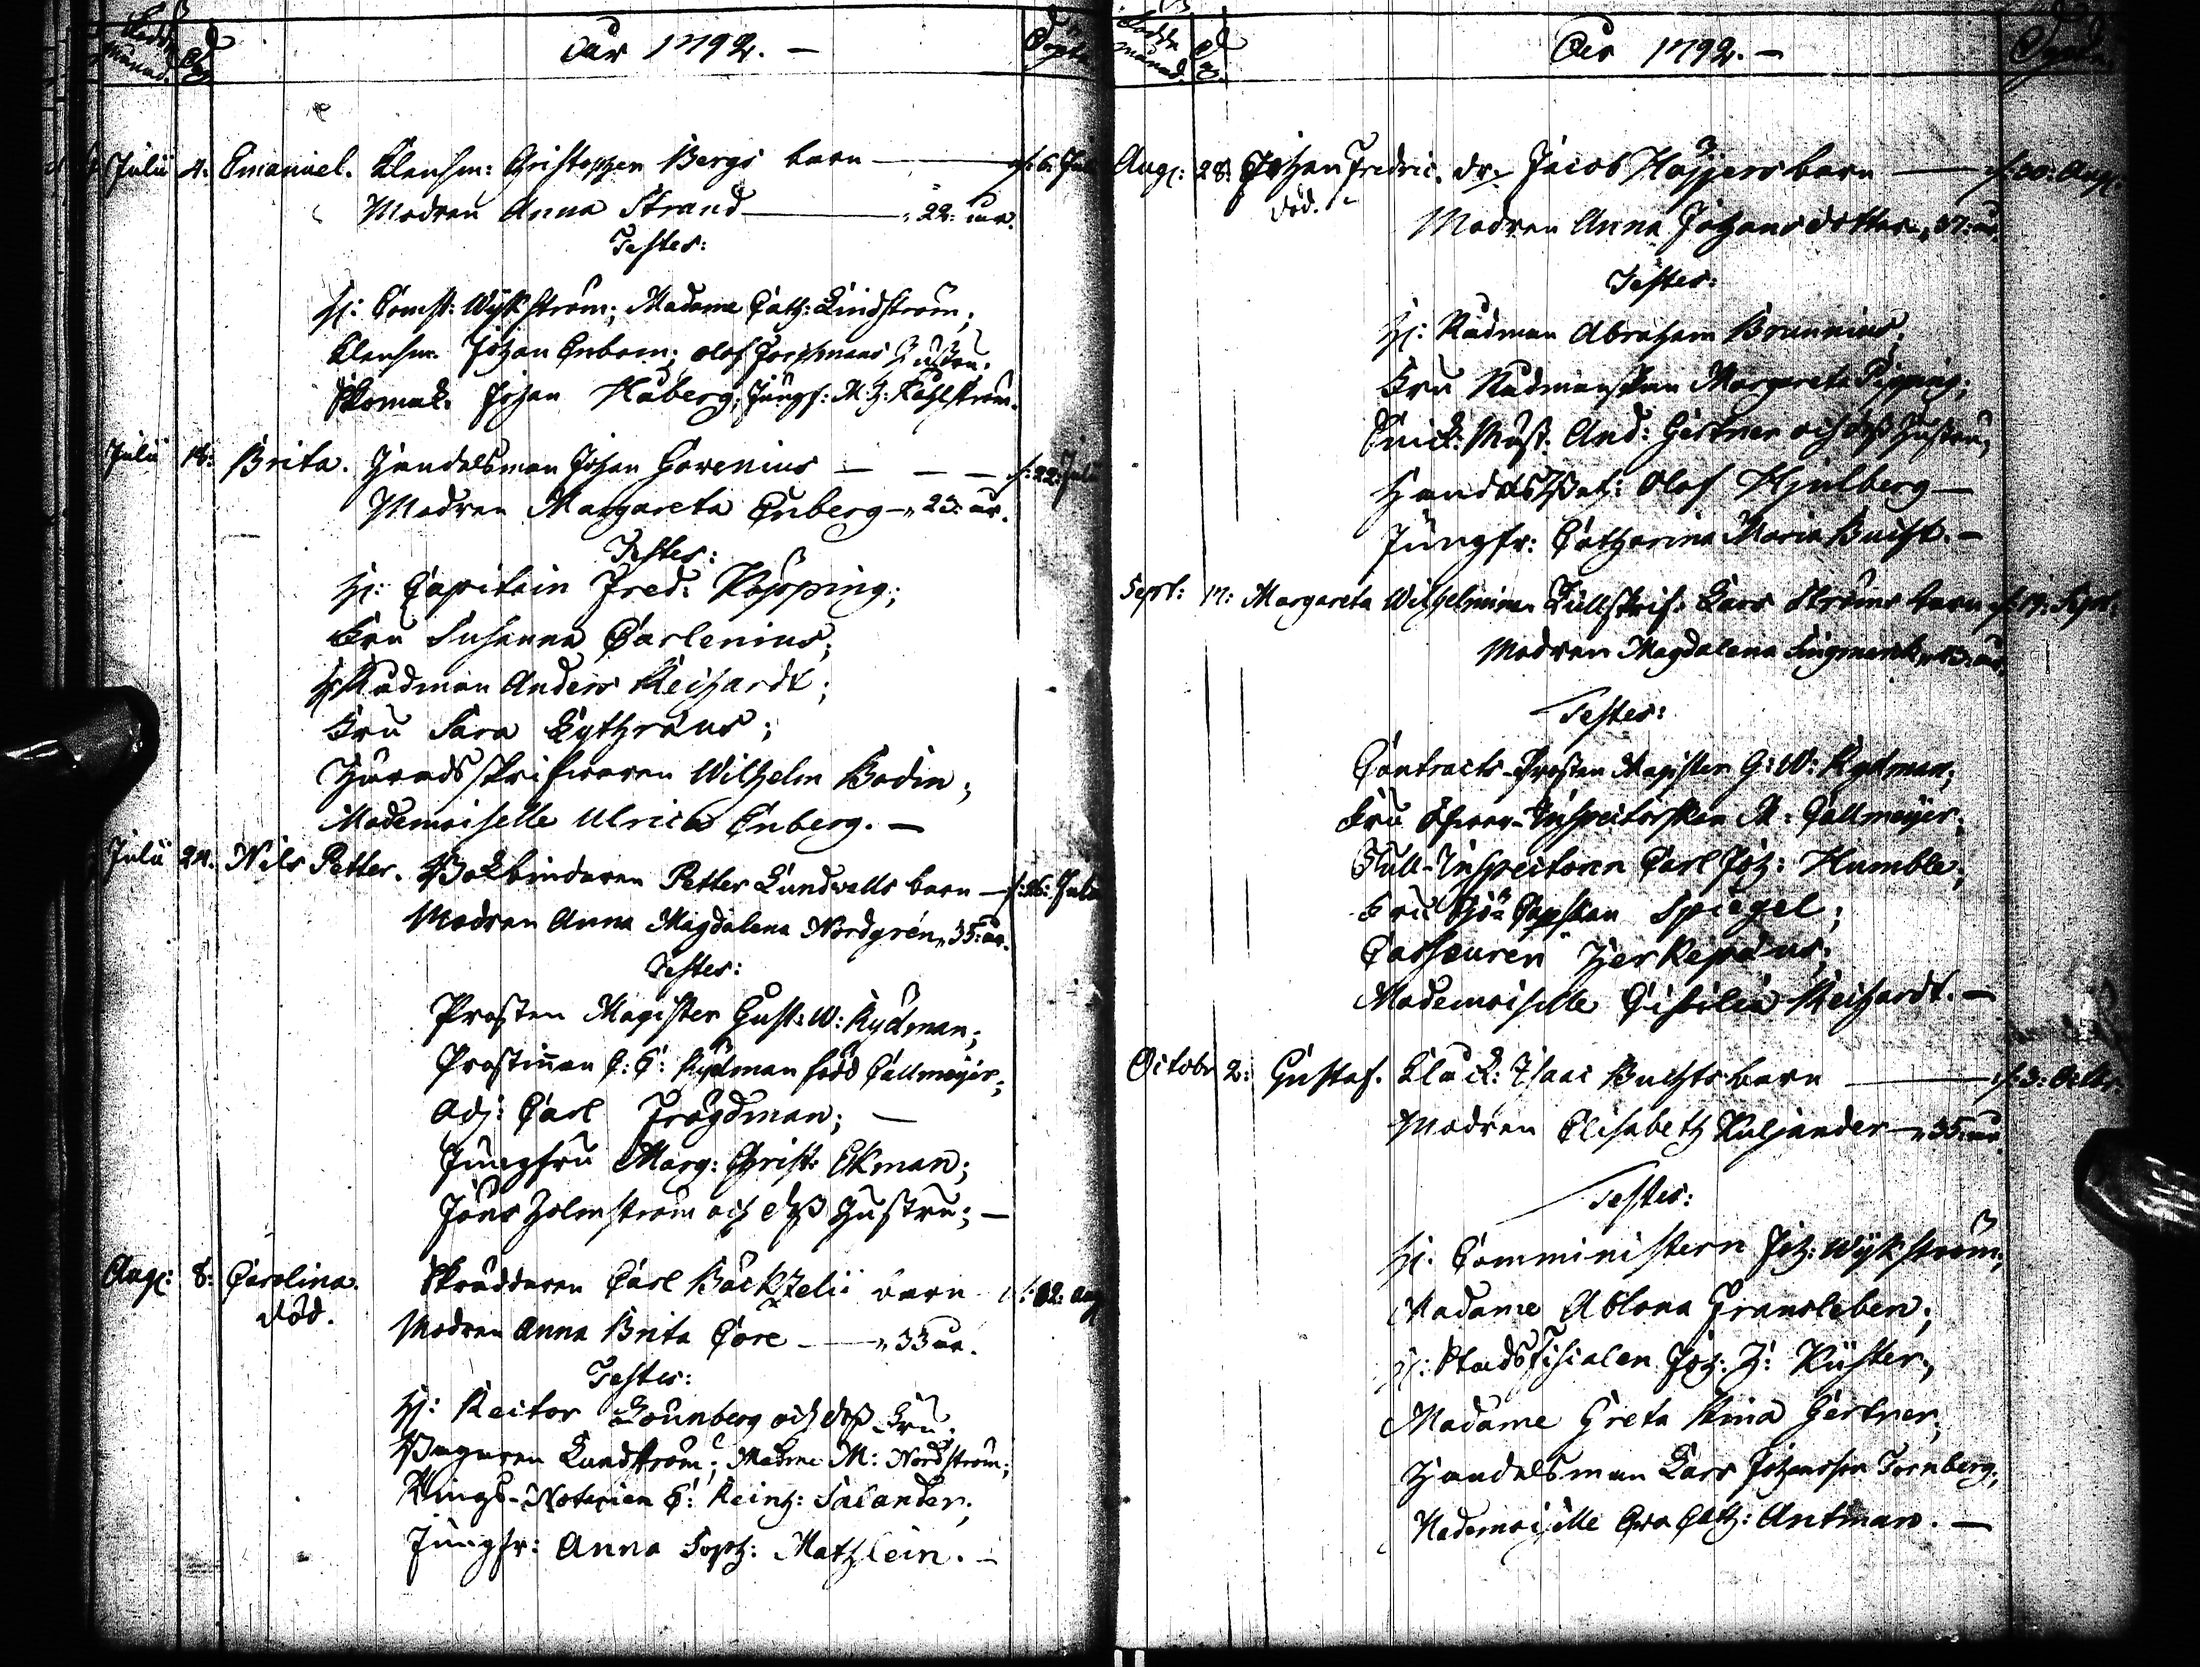 Födde Månad. Dag
Åhr 1792. —
Döpte
Julii 4: Emanuel. Klensm: Christopher Bergs barn — d: 6: Julii
Modren Anna Strand — 22: år.
Testes:
H: Comst: Wykström; Madame Cath: Lindström;
Klensm. Johan Enbom; Olof hustru.
Skomak. Johan Håberg; Jungf: M: H: Kahlström.
Julii 18: Brita. Handelsman Johan Gavenius — — — d: 22: Julii
Modren Margareta Enberg — 23: år.
Testes:
H: Capitain Fred: Köpping;
Fru Susanna Carlenius;
H Rådman Anders Reichardt;
Fru Sara Lythræus;
Häradsskrifwaren Wilhelm Bodin;
Mademoiselle Ulrica Enberg. —
Julii 24. Nils Petter. Bokbindaren Petter Lundwalls barn — d: 26: Julii
Modren Anna Magdalena Nordgrén, 35: år.
Testes:
Prosten Magister Gust: W: Rydman;
Prostinnan C: C: Rydman född Callmeyer;
Adj: Carl Frögdman; —
Jungfru Marg: Christ: Ekman;
Jöns Holmström och dess hustru; —
Aug: 8: Carolina. Skräddaren Carl Bäckzelii barn d: 12: Aug
död.
Modren Anna Brita Core — 33 år.
Testes:
H: Rector Lounberg och dess Fru.
Lundström; Madme M: Nordström;
Rings-Notarien C: Reinh: Salander;
Jungfr: Anna Soph: Mathlein. —
Födde Månad. Dag.
Åhr 1792. —
Döpte
Aug: 28: Johan Fredric. dr. Jacob Höijers barn — d: 30: Aug:
död.
Modren Anna Johansdotter, 37: år.
Testes:
H: Rådman Abraham Brunnius;
Fru Rådmanskan Margareta Pipping;
Snick: Mäst: And: Gertner och dess hustru;
Handels Olof Hjulberg —
Jungfr: Catharina Maria Bucht. —
Sept: 17: Margareta Wilhelmina. Tullskrif. Lars Ströms barn d: 19: Sept.
Modren Magdalena Lingment, år
Testes:
Contracts-Prosten Magister G: W: Rydman;
Fru Öfwer-Inspectorskan M: Callmeyer;
Tull-Inspectoren Carl Joh: Humble;
Fru Sjö Capskan Spiegel;
Casseuren Herkepæus;
Mademoiselle Cicilia Reichardt. —
Octobr 2: Gustaf. Klock: Isaac Buchts barn — d: 3: Octbr.
Modren Elisabeth Kuljander — 35: år
Testes:
H: Comministern Joh: Wykström;
Madame Ablona Fransleben;
H: Stadsfiscalen Joh: H: Küster;
Madame Greta Stina Gertner;
Handelsman Lars Johansson Tornberg;
Mademoiselle Eva Cath: Antman. —